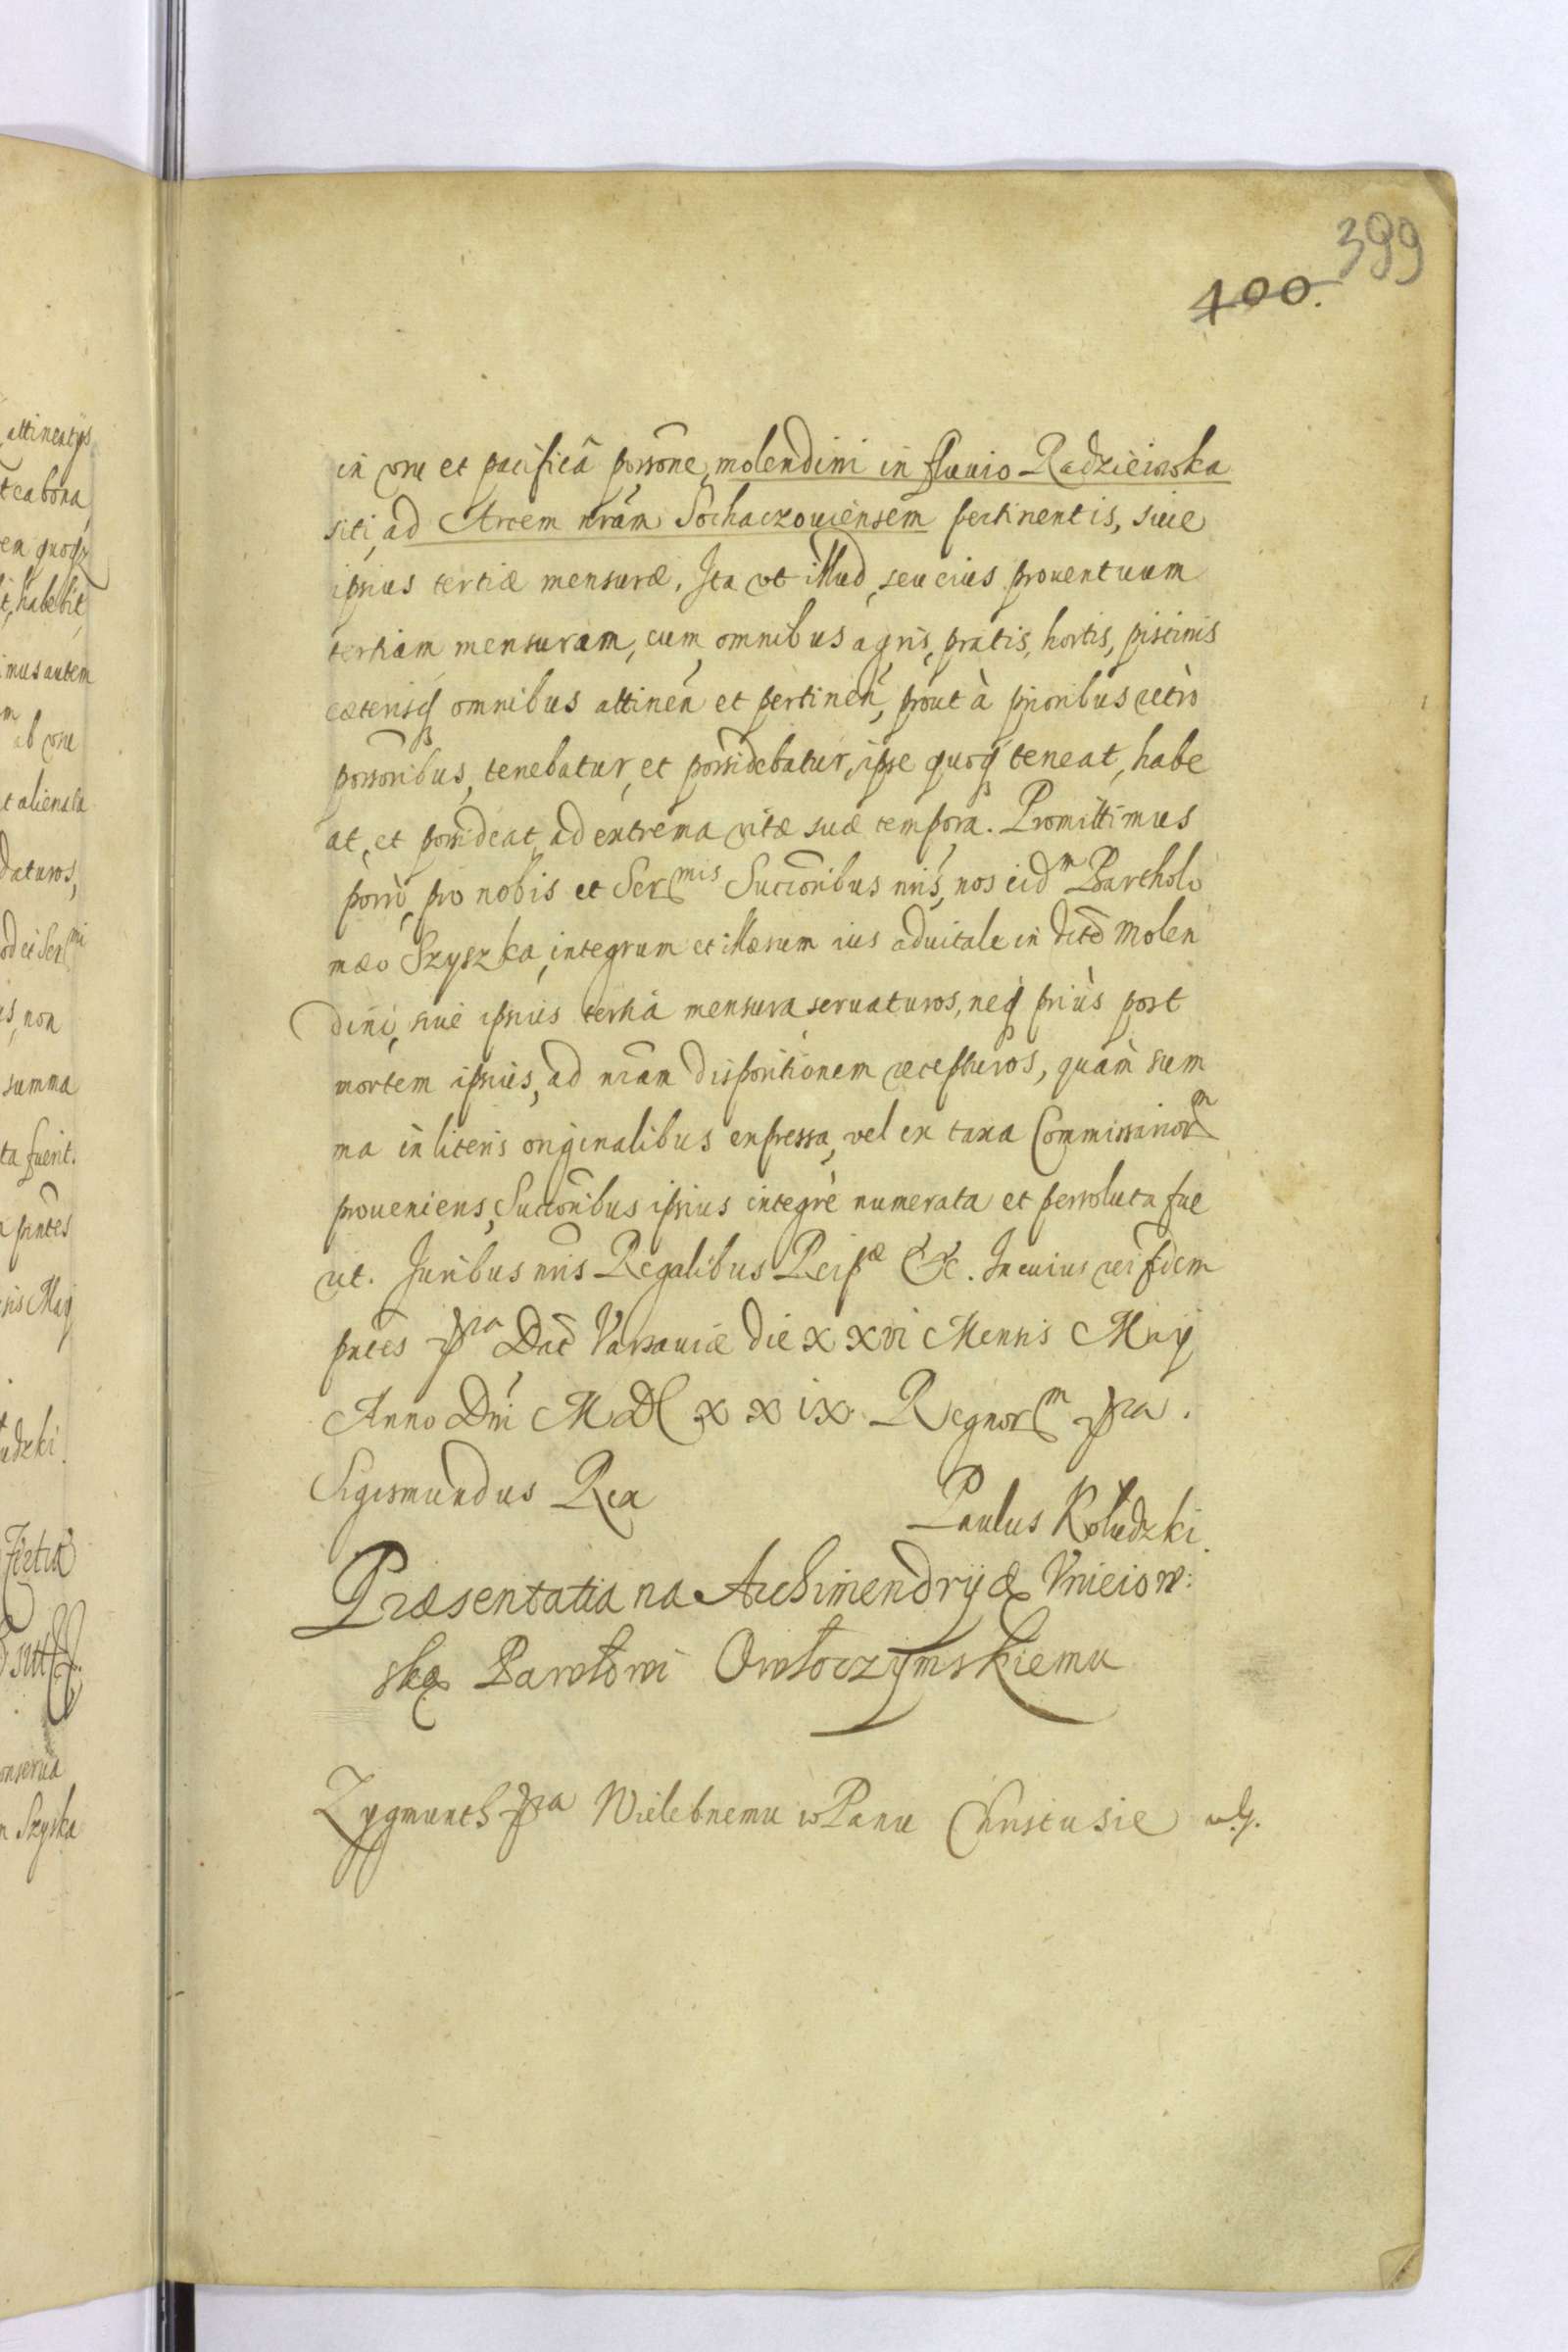 399
400.
in usu et pacificâ possõne, molendini in fluuio Radzieiowska
siti, ad Arcem nrãm Sochaczouiensem pertinentis, siue
ipsius tertiæ mensuræ. Ita vt illud, seu eius prouentuum
tertiam mensuram, cum omnibus agris, pratis, hortis, piscinis
cæterisq omnibus attineñ et pertineñ, prout à prioribus retrò
possoribus, tenebatur, et possidebatur, ipse quoq teneat, habe
at, et possideat, ad extrema vitæ suæ tempora. Promittimus
porrò, pro nobis et Sermis Succoribus nris, nos eidm Bartholo
mæo Szyszka, integrum et illæsum ius aduitale in dicto Molen
dini, siue ipsius tertia mensura seruaturos, neq priùs post
mortem ipsius, ad nram dispositionem recepturos, quàm sum
ma in literis originalibus expressa, vel ex taxa Commissariorm
proueniens, Succoribus ipsius integrè numerata et persoluta fue
rit. Juribus nris Regalibus Reipæ &c. In cuius rei fidem
pntes pra Dat Varsauiæ die xxvi Mensis Maij
Anno Dni MDCxxix Regnorm pra.
Sigismundus Rex
Paulus Kołudzki.
Præsentatia na Archimendriją Vnieiow:
ską Pawłowi Owłoczymskiemu
Zygmunth pra Wielebnemu w Panu Christusie
attinentijs
ea bona
en quoq
t, habebit
imus autem
ab usu
t alienata
daturos,
od et Sermi
us, non
summa
ta fuerit.
pntes
sis Maij
udzki.
onserua
n Szyska